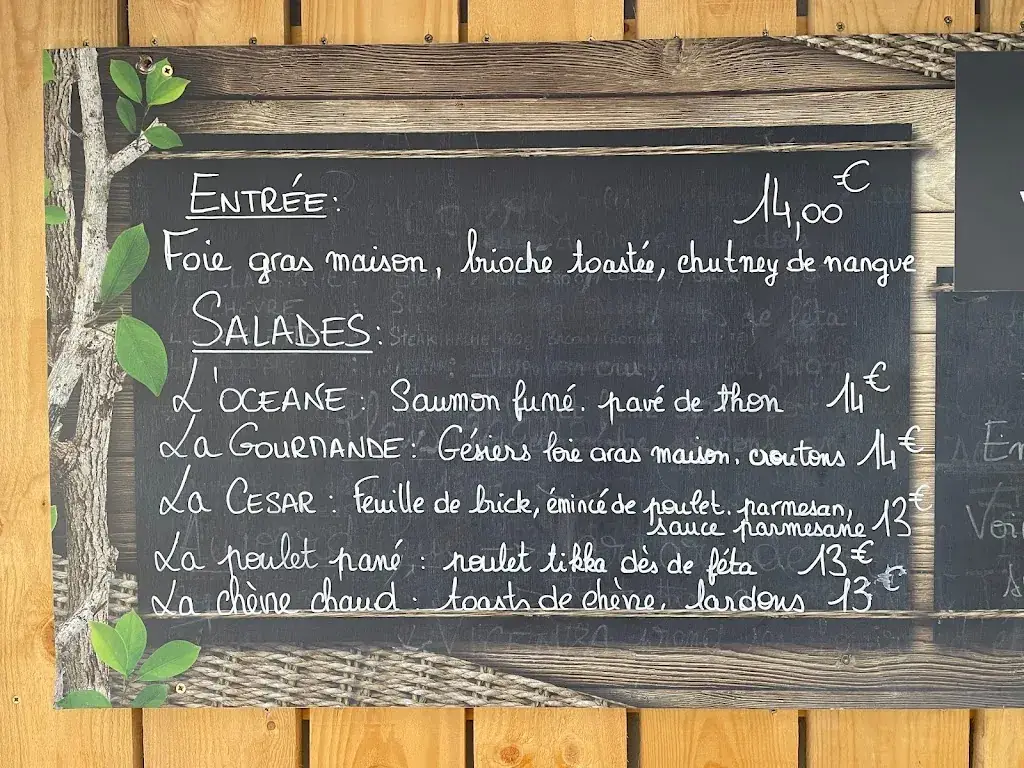 ENTRÉE: 14,00 €
Foie gras maison, brioche toastée, chutney de mangue
SALADES:
L'OCEANE: Saumon fumé. pavé de thon 14€
La GOURMANDE: Gésiers foie gras maison. croutons 14€
La CESAR: Feuille de brick, émincé de poulet. parmesan,
sauce parmesane 13€
La poulet pané: poulet tikka dès de féta 13€
La chèvre chaud: toasts de chèvre, lardons 13€
En
Voi